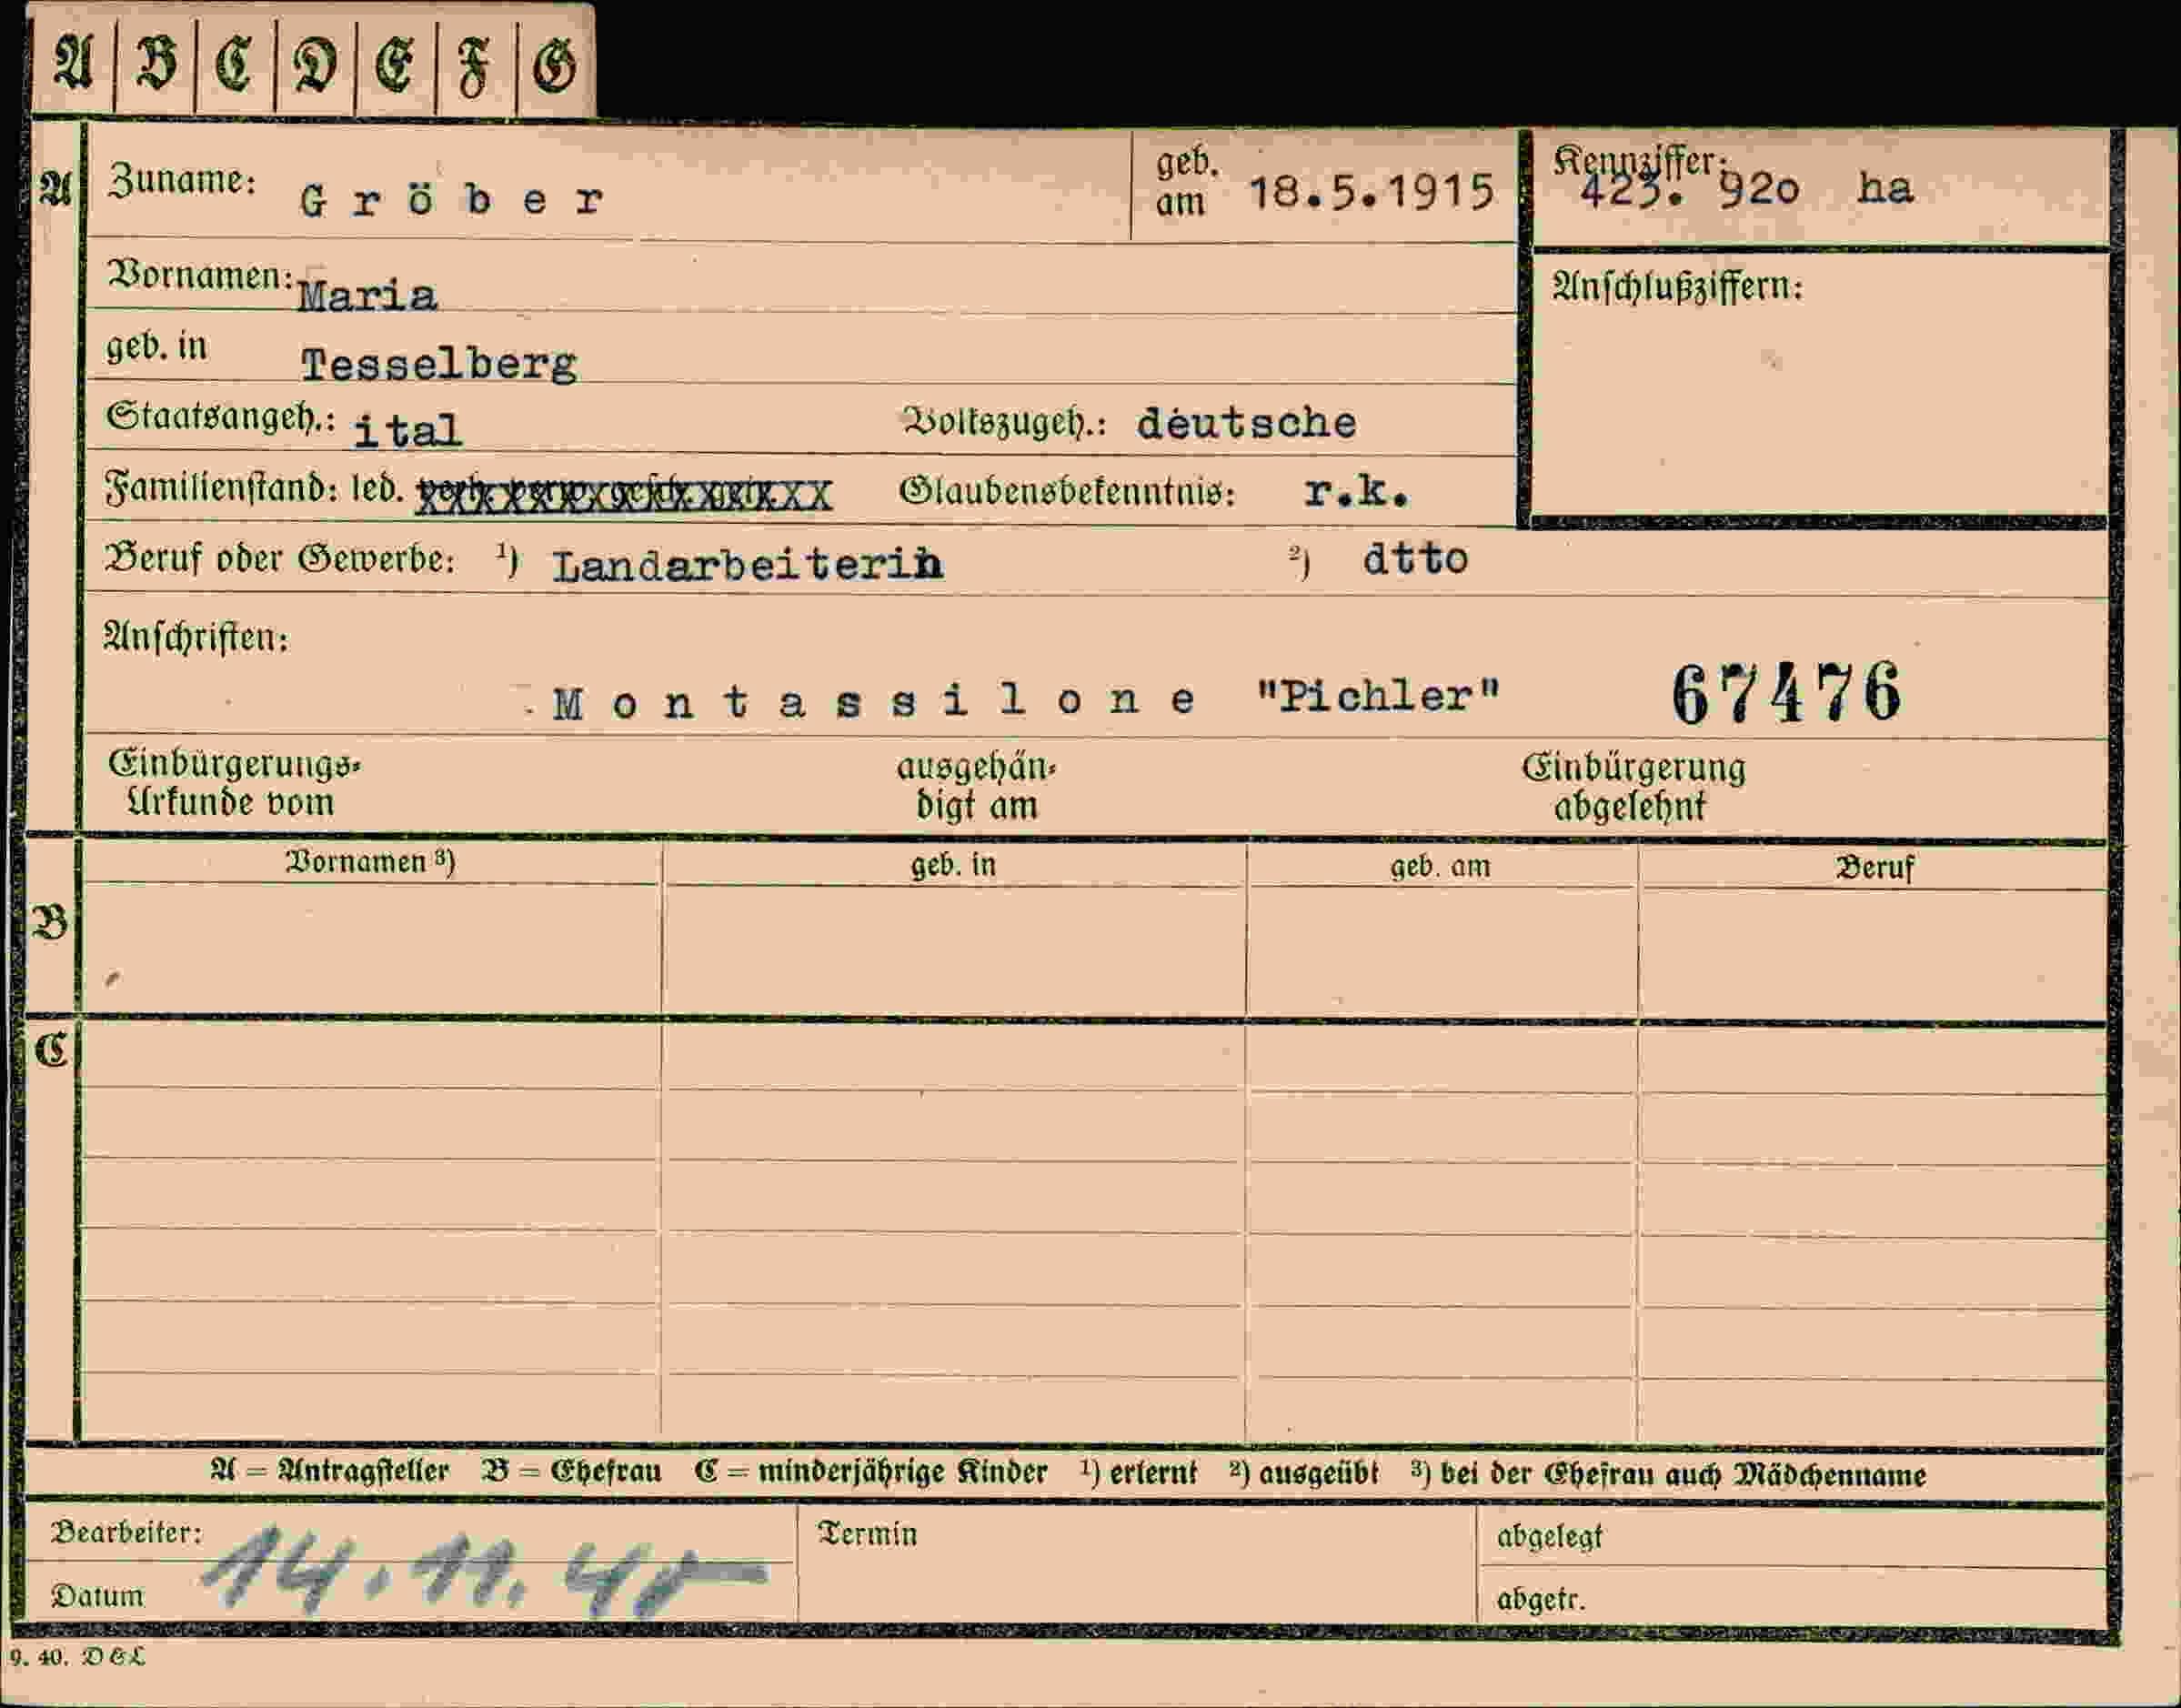 A B C D E F G
A Zuname: Gröber geb. am 18.5.1915 Kennziffer: 423. 92o ha
Vornamen: Maria Anschlußziffern:
geb. in Tesselberg
Staatsangeh.: ital Volkszugeh.: deutsche
Familienstand: led. Glaubensbekenntnis: r.k.
Beruf oder Gewerbe: ¹) Landarbeiterin ²) dtto
Anschriften:
Montassilone "Pichler" 67476
Einbürgerungs- ausgehän- Einbürgerung
Urkunde vom digt am abgelehnt
Vornamen ³) geb. in geb. am Beruf
B
C
A = Antragsteller B = Ehefrau C = minderjährige Kinder ¹) erlernt ²) ausgeübt ³) bei der Ehefrau auch Mädchenname
Bearbeiter: Termin abgelegt
14.11.
Datum abgetr.
9. 40. DEL